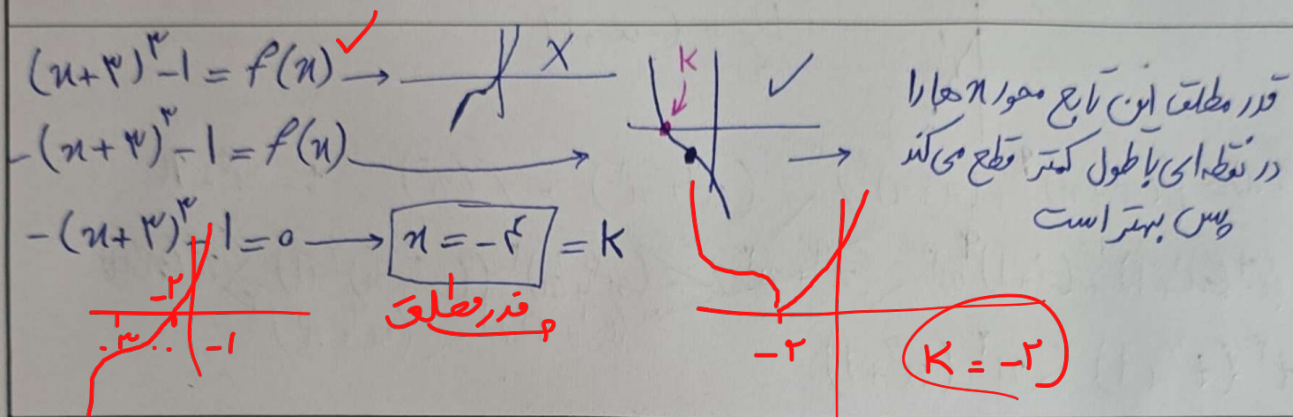 (x+۳)^۳-۱ = f(x) ✓ → X
K ✓
-(x+۳)^۳-۱ = f(x) → → قدر مطلق این تابع محور x ها را
در نقطه‌ای با طول کمتر قطع می‌کند
پس بهتر است
-(x+۳)^۳-۱=۰ → x = -۴ = K
قدر مطلق
-۲
-۳
-۱
-۲
K = -۲